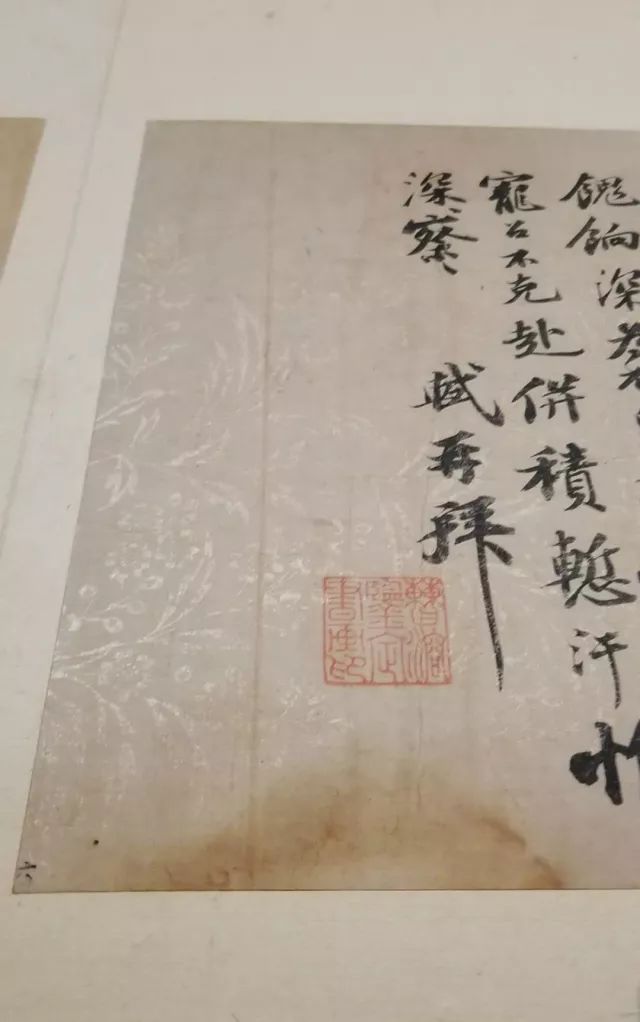 餽餉深
寵召不克赴併積慙汗惟
深察
軾再拜
六